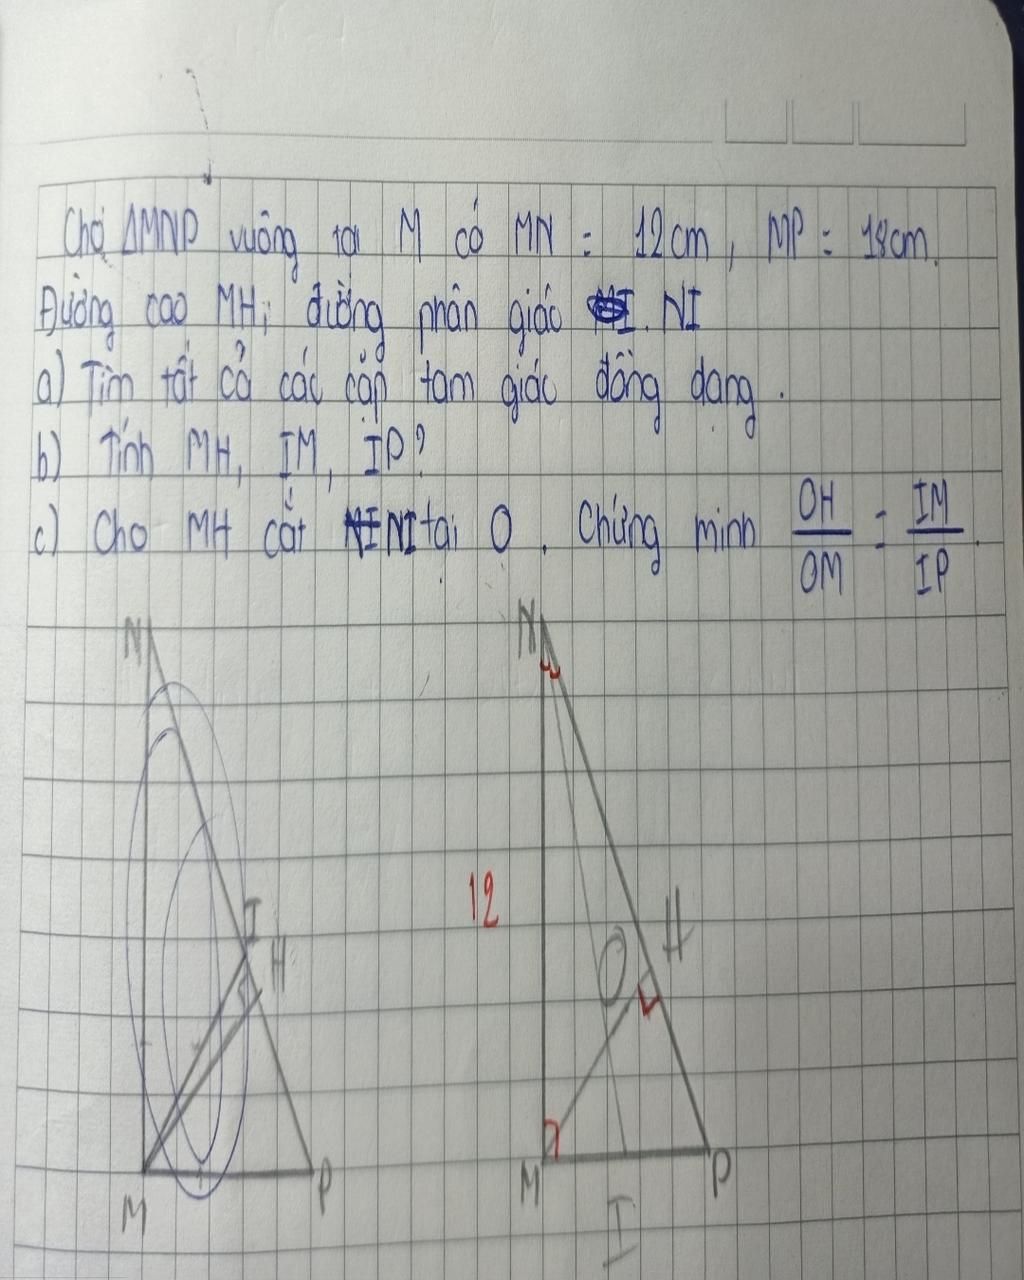 Cho ΔMNP vuông tại M có MN = 12cm, MP = 18cm.
Đường cao MH; đường phân giác NI
a) Tìm tất cả các cặp tam giác đồng dạng.
b) Tính MH, IM, IP?
c) Cho MH cắt NI tại O. Chứng minh OH/OM = IM/IP.
N
N
12
I
H
O
H
M
P
M
I
P